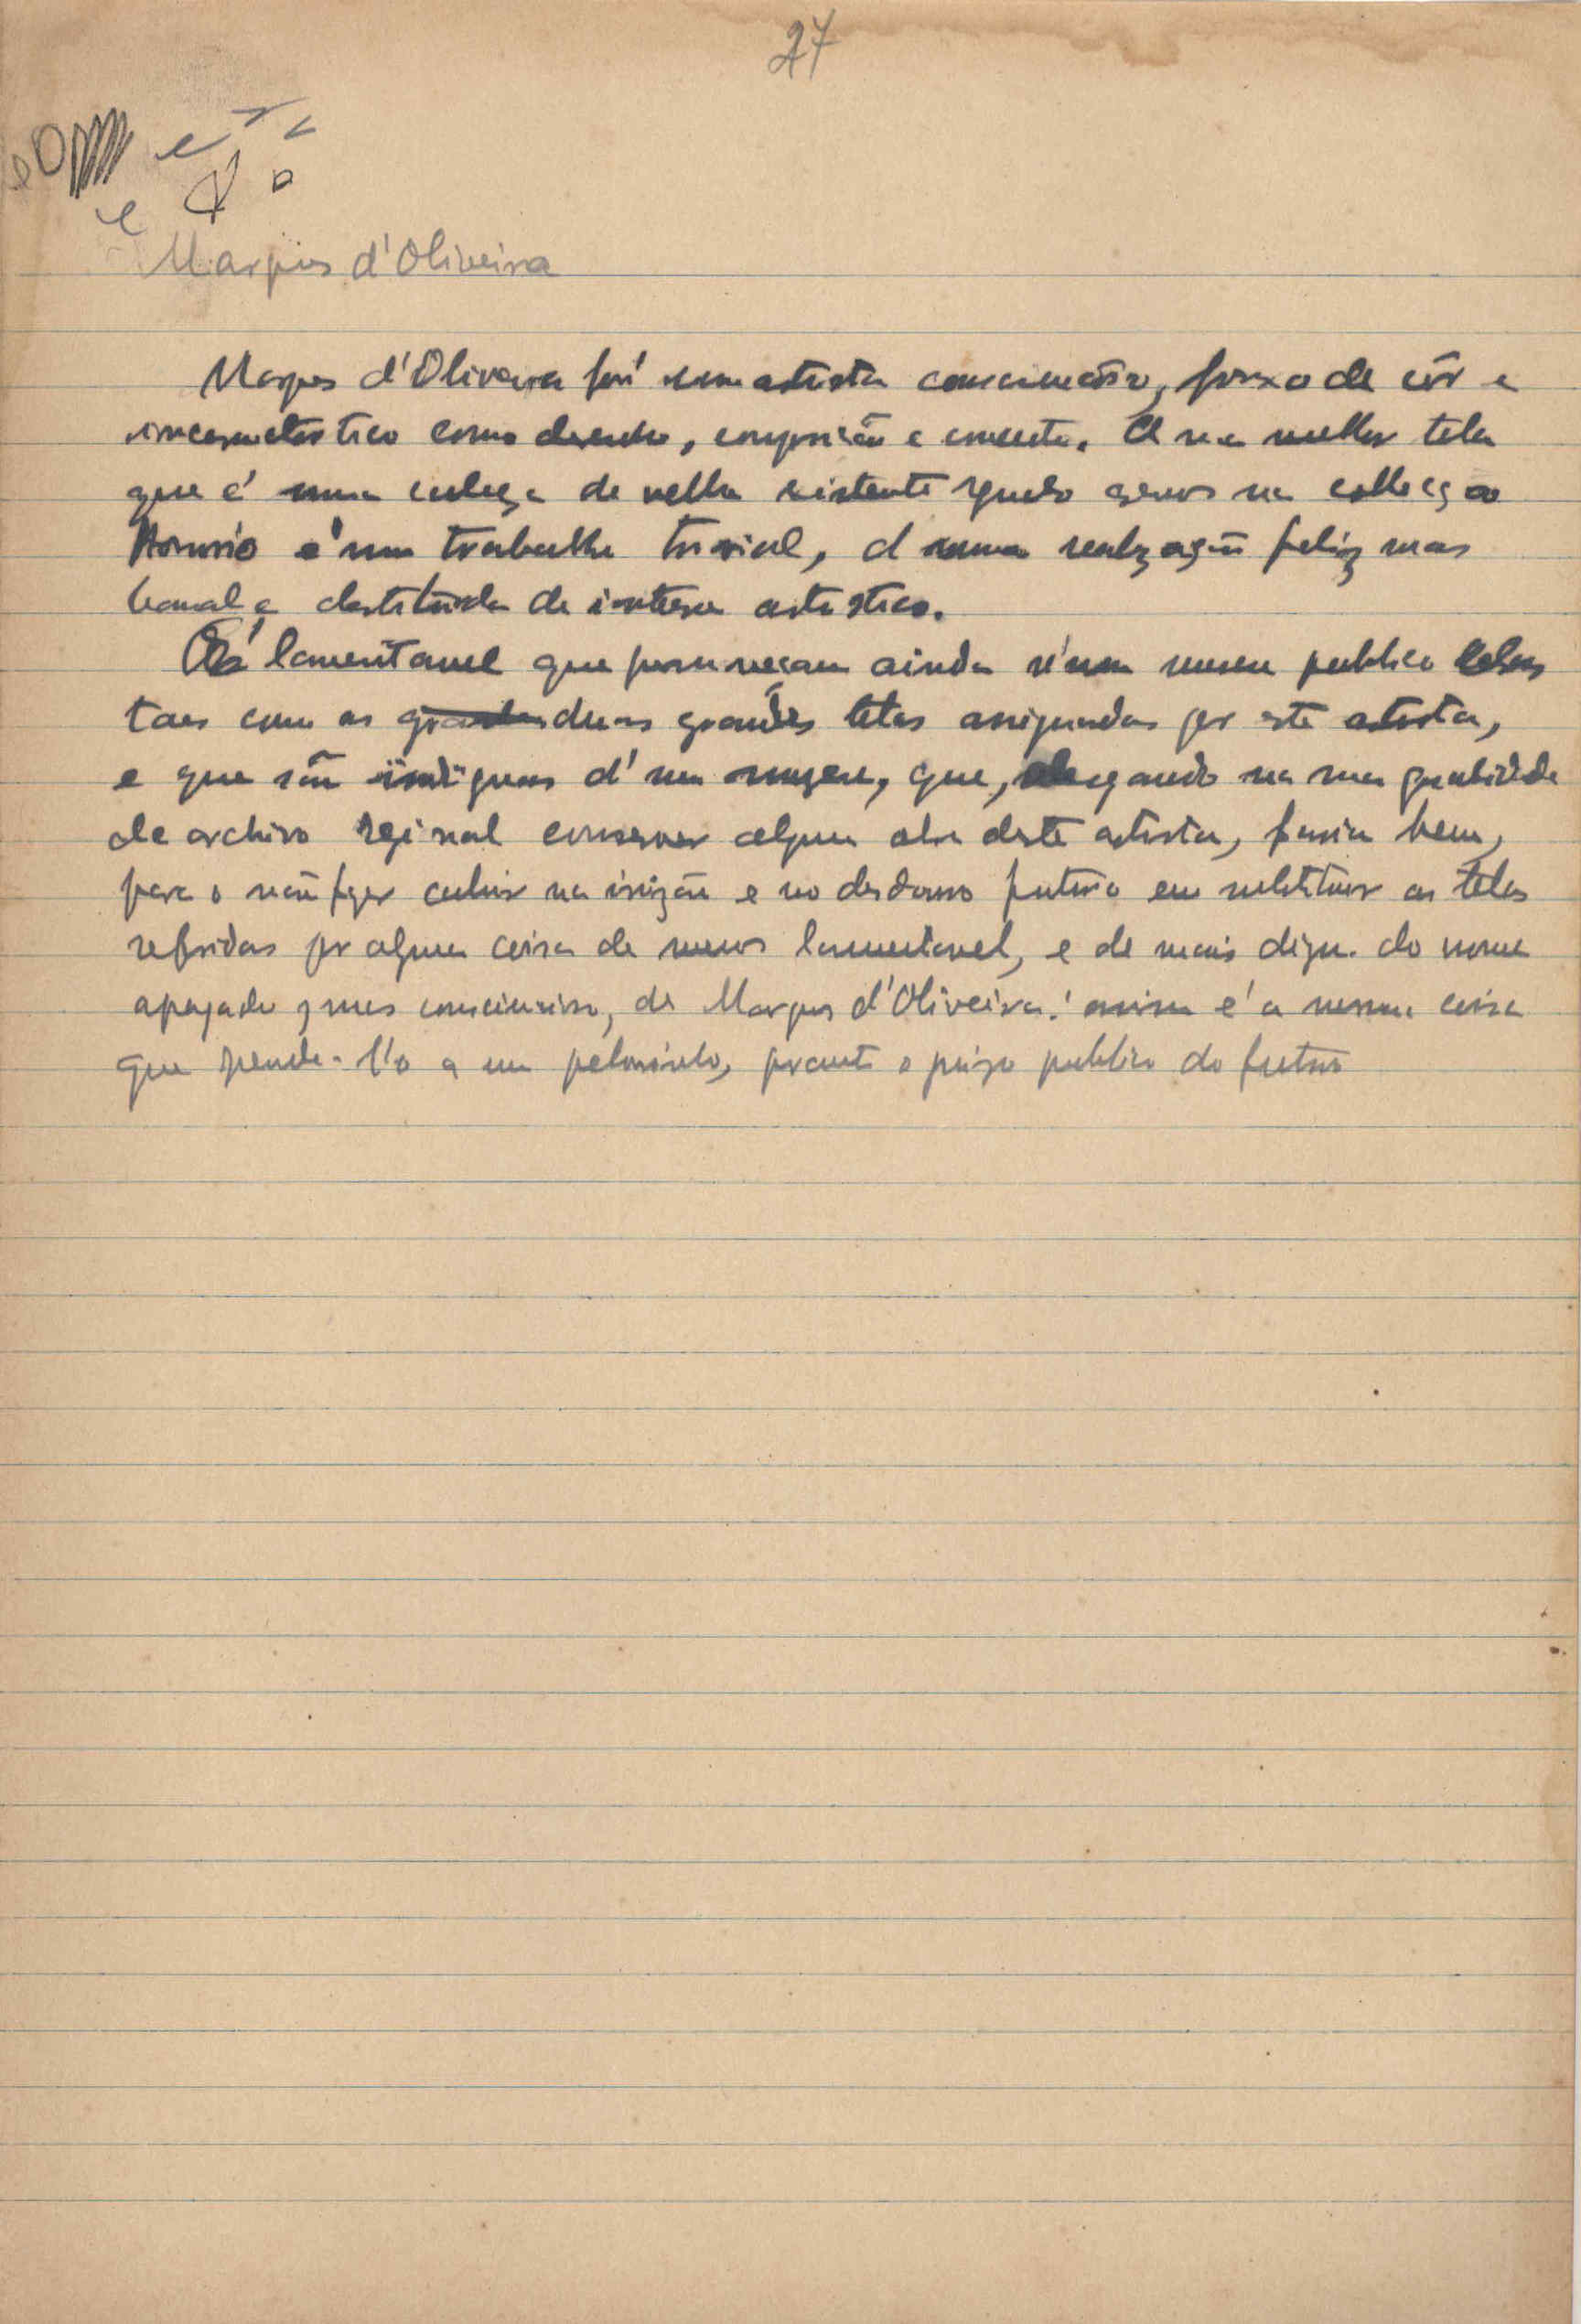 27
Marques d'Oliveira
Marques d'Oliveira foi um artista consciencioso, frouxo de côr e
incaracteristico como desenho, composição e conceito. A sua melhor tela
que é uma cabeça de velha existente segundo creio na collecção
é um trabalho trivial, d'uma realização feliz mas
banal e destituida de interesse artistico.
É lamentavel que permaneçam ainda n'um museu publico telas
taes como as grandes duas grandes telas assignadas por este artista,
e que são indignas d'um museu, que, desejando na sua qualidade
de archivo regional conservar alguma obra deste artista, faria bem,
para o não fazer cahir na irrisão e no desdouro futuro em substituir as telas
referidas por alguma coisa de menos lamentavel, e de mais digno do nome
apagado mas consciencioso, de Marques d'Oliveira. assim é a mesma coisa
que prende-l'o a um pelourinho, perante o juizo publico do futuro